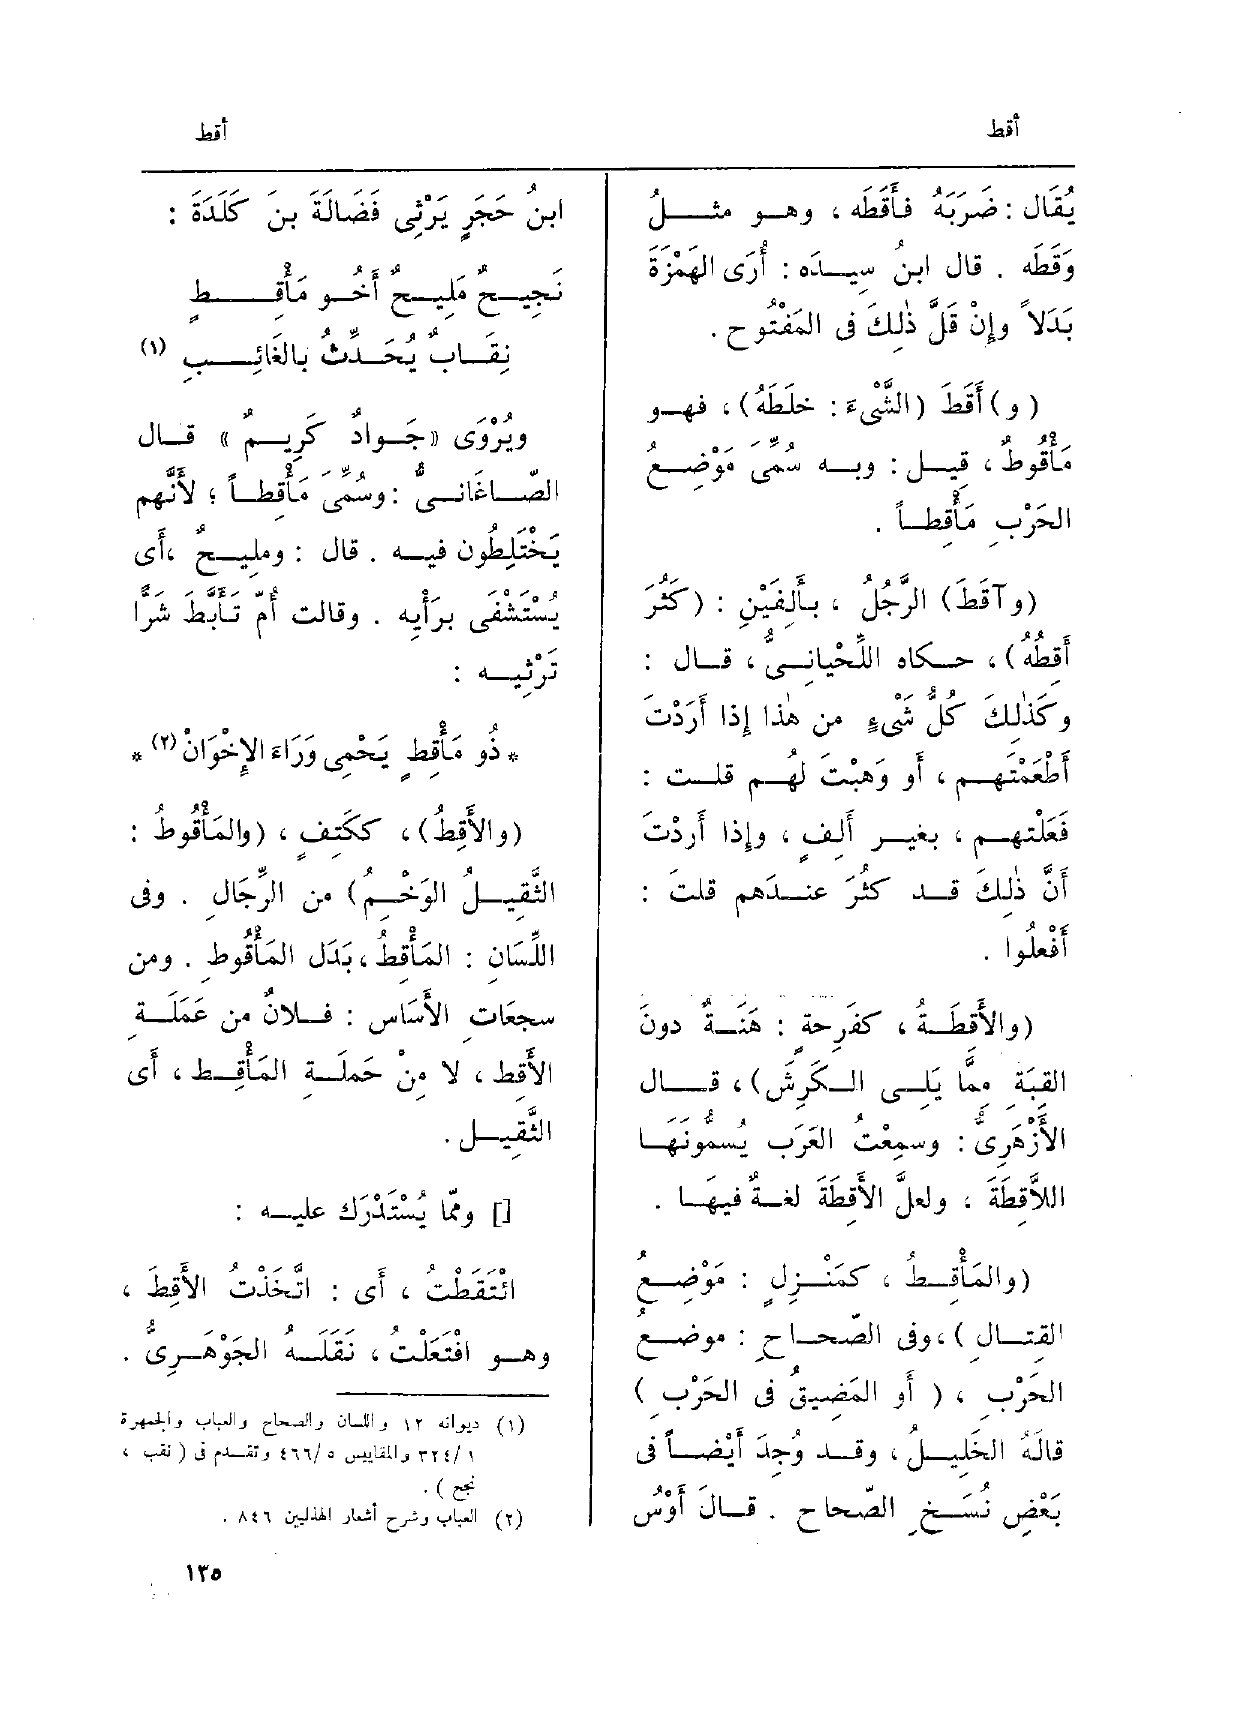 أقط
أقط
يُقَال : ضَرَبَهُ فأَقَطَه ، وهـو مثـلُ
وَقَطَه . قال ابنُ سيـدَه : أُرَى الهَمْزَةَ
بَدَلاً وإِنْ قَلَّ ذٰلِكَ فى المَفْتُوح .
( و ) أَقَطَ (الشَّىْءَ : خلَطَهُ) ، فهـو
مَأْقُوطٌ ، قيـل : وبـه سُمِّىَ مَوْضِـعُ
الحَرْبِ مَأْقِطـاً .
(وآقَطَ) الرَّجُلُ ، بـأَلِفَيْنِ : (كَثُرَ
أَقِطُهُ) ، حـكاه اللِّحْيانـىُّ ، قـال :
وكَذٰلِكَ كُلُّ شَىْءٍ من هٰذا إذا أَرَدْتَ
أَطْعَمْتَهـم ، أو وَهَبْتَ لهُـم قلـت :
فَعَلْتهـم ، بغيـر أَلِفٍ ، وإذا أَردْتَ
أَنَّ ذٰلِكَ قـد كَثُرَ عنـدَهم قلتَ :
أَفْعلُوا .
(والأَقِطَـةُ ، كفَرِحَةٍ : هَنَـةٌ دونَ
القِبَة مِمَّا يَلِـى الـكَرِشَ) ، قـال
الأَزْهَرِىُّ : وسمِعْتُ العَرَبَ يُسمُّونَهـا
اللاَّقِطَةَ ، ولعلَّ الأَقِطَةَ لغـةٌ فيهَـا .
(والمَأْقِـطُ ، كمَنْـزِلٍ : مَوْضِـعُ
القِتـالِ ) ، وفى الصّحـاحِ : موضـعُ
الحَرْبِ ، ( أو المَضِيقُ فى الحَرْبِ )
قالَهُ الخَلِيـلُ ، وقـد وُجِدَ أَيْضـاً فى
بَعْضِ نُسَـخِ الصّحاح . قـالَ أَوْسُ
ابنُ حَجَرٍ يَرْثِى فَضَالَةَ بنَ كَلَدَةَ :
نَجِيـحٌ مَلِيـحٌ أَخُـو مَأْقِـطٍ
نِقَـابٌ يُحَـدِّثُ بالغَائِـبِ (١)
ويُرْوَى «جَـوادٌ كَرِيـمٌ » قـال
الصّـاغَانـىُّ : وسُمِّىَ مَأْقِطـاً ؛ لأَنَّهم
يَخْتَلِطُون فيـه . قال : ومليـحٌ ، أَى
يُسْتَشْفَى برَأْيِه . وقالت أُمّ تَأَبَّطَ شَرًّا
تَرْثِيـه :
* ذُو مَأْقِطٍ يَحْمِى وَرَاءَ الإِخْوَانْ (٢) *
(والأَقِطُ) ، ككَتِفٍ ، (والمَأْقُوطُ :
الثَّقِيـلُ الوَخْـمُ) من الرِّجَالِ . وفى
اللِّسَانِ : المَأْقِطُ ، بَدَل المَأْقُوطِ . ومن
سجَعَاتِ الأَسَاسِ : فـلانٌ من عَمَلَـةِ
الأَقِط ، لا مِنْ حَمَلَـةِ المَأْقِـط ، أَى
الثَّقِيـل .
[] وممّا يُسْتَدْرَك عليـه :
ائْتَقَطْتُ ، أَى : اتَّخَذْتُ الأَقِطَ ،
وهـو افْتَعَلْتُ ، نَقَلَـهُ الجَوْهَـرِىُّ .
(١) ديوانه ١٢ واللسان والصحاح والعباب والجمهرة
١/ ٣٢٤ والمقاييس ٥ /٤٦٦ وتقـدم فى ( نقب ،
نجح ) .
(٢) العباب وشرح أشعار الهذليين ٨٤٦ .
١٣٥